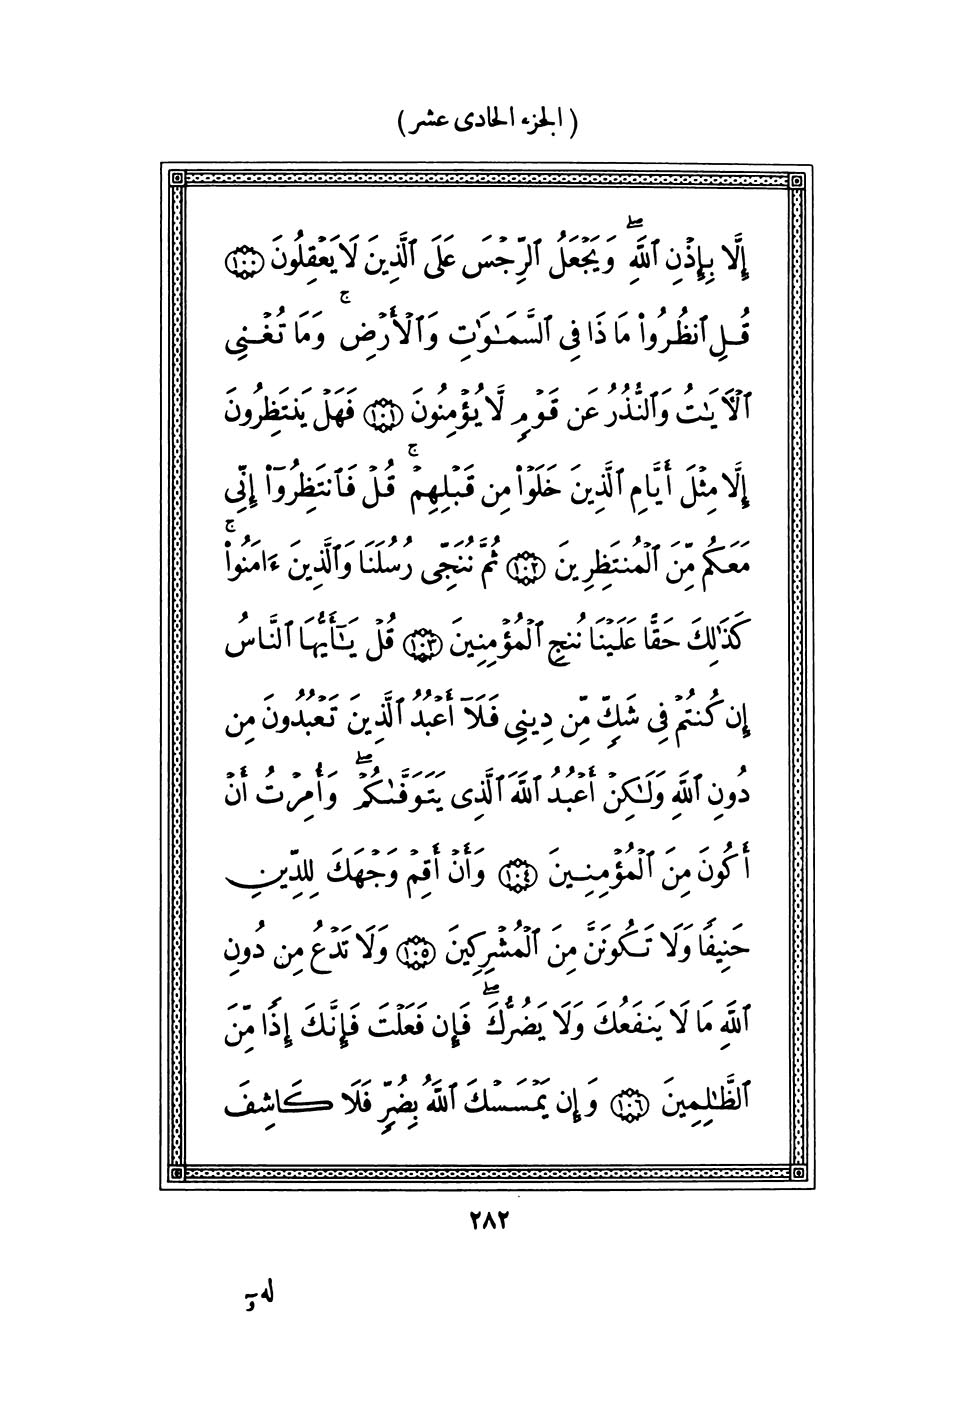 (الجزء الحادى عشر)
إِلَّا بِإِذْنِ ٱللَّهِ ۖ وَيَجْعَلُ ٱلرِّجْسَ عَلَى ٱلَّذِينَ لَا يَعْقِلُونَ ١٠٠
قُلِ ٱنظُرُوا۟ مَاذَا فِى ٱلسَّمَـٰوَٰتِ وَٱلْأَرْضِ ۚ وَمَا تُغْنِى
ٱلْـَٔايَـٰتُ وَٱلنُّذُرُ عَن قَوْمٍ لَّا يُؤْمِنُونَ ١٠١ فَهَلْ يَنتَظِرُونَ
إِلَّا مِثْلَ أَيَّامِ ٱلَّذِينَ خَلَوْا۟ مِن قَبْلِهِمْ ۚ قُلْ فَٱنتَظِرُوٓا۟ إِنِّى
مَعَكُم مِّنَ ٱلْمُنتَظِرِينَ ١٠٢ ثُمَّ نُنَجِّى رُسُلَنَا وَٱلَّذِينَ ءَامَنُوا۟ ۚ
كَذَٰلِكَ حَقًّا عَلَيْنَا نُنجِ ٱلْمُؤْمِنِينَ ١٠٣ قُلْ يَـٰٓأَيُّهَا ٱلنَّاسُ
إِن كُنتُمْ فِى شَكٍّ مِّن دِينِى فَلَآ أَعْبُدُ ٱلَّذِينَ تَعْبُدُونَ مِن
دُونِ ٱللَّهِ وَلَـٰكِنْ أَعْبُدُ ٱللَّهَ ٱلَّذِى يَتَوَفَّىٰكُمْ ۖ وَأُمِرْتُ أَنْ
أَكُونَ مِنَ ٱلْمُؤْمِنِينَ ١٠٤ وَأَنْ أَقِمْ وَجْهَكَ لِلدِّينِ
حَنِيفًا وَلَا تَكُونَنَّ مِنَ ٱلْمُشْرِكِينَ ١٠٥ وَلَا تَدْعُ مِن دُونِ
ٱللَّهِ مَا لَا يَنفَعُكَ وَلَا يَضُرُّكَ ۖ فَإِن فَعَلْتَ فَإِنَّكَ إِذًا مِّنَ
ٱلظَّـٰلِمِينَ ١٠٦ وَإِن يَمْسَسْكَ ٱللَّهُ بِضُرٍّ فَلَا كَاشِفَ
٢٨٢
لهۥٓ